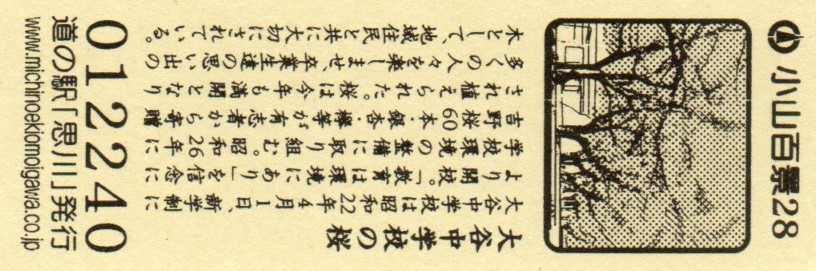 小山百景28
大谷中学校の桜
大谷中学校は昭和22年4月1日、新学制に
より開校。「教育は環境にあり」を信念に
学校環境の整備に取り組む。昭和26年に
吉野桜60本・銀杏・欅等が有志者から寄贈
され植えられた。桜は今年も満開となり
多くの人々を楽しませ、卒業生達の思い出の
木として、地域住民と共に大切にされている。
012240
道の駅「思川」発行
www.michinoekiomoigawa.co.jp